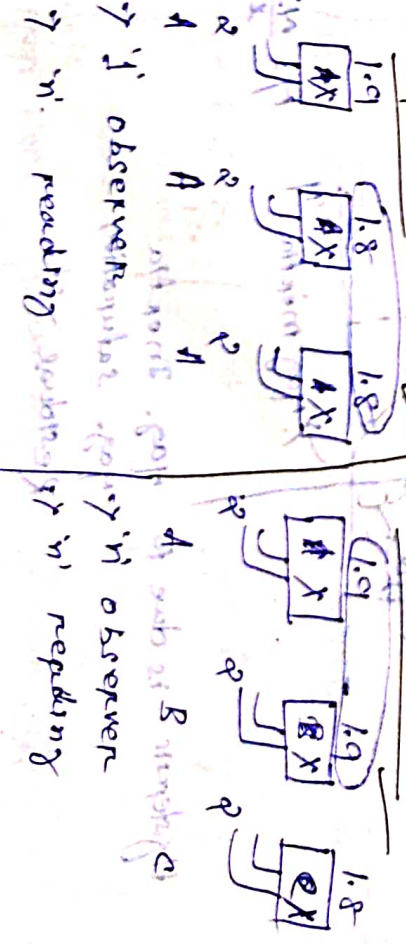 1.9 1.8 1.8
AX AX AX
2 2 2
A A A
→ '1' observer
→ 'n' reading
1.9 1.9 1.8
A X B X C X
2 2 2
A B C
→ 'n' observer
→ 'n' reading